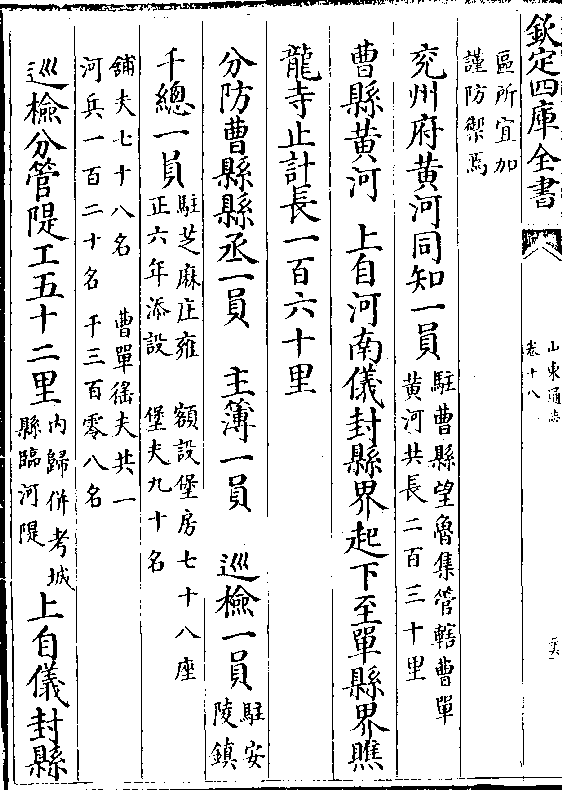 欽定四庫全書
山東通志
卷十八
區所宜加
謹防禦焉
兖州府黄河同知一員
駐曹縣望魯集管轄曹單
黄河共長二百三十里
曹縣黄河 上自河南儀封縣界起下至單縣界瞧
龍寺止計長一百六十里
分防曹縣縣丞一員 主簿一員 巡檢一員
駐安
陵鎮
千總一員
駐芝麻庄雍
正六年添設
額設堡房七十八座
堡夫九十名
鋪夫七十八名 曹單徭夫共一
河兵一百二十名 千三百零八名
巡檢分管隄工五十二里
内歸併考城
縣臨河隄
上自儀封縣